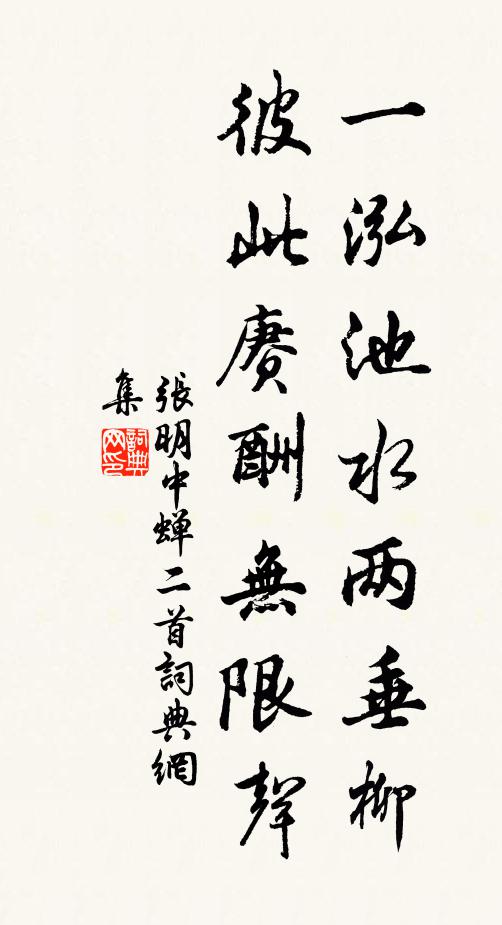 一泓池水两垂柳
彼此赓酬無限聲
張明中蝉二首詞典網
集
詞典网印